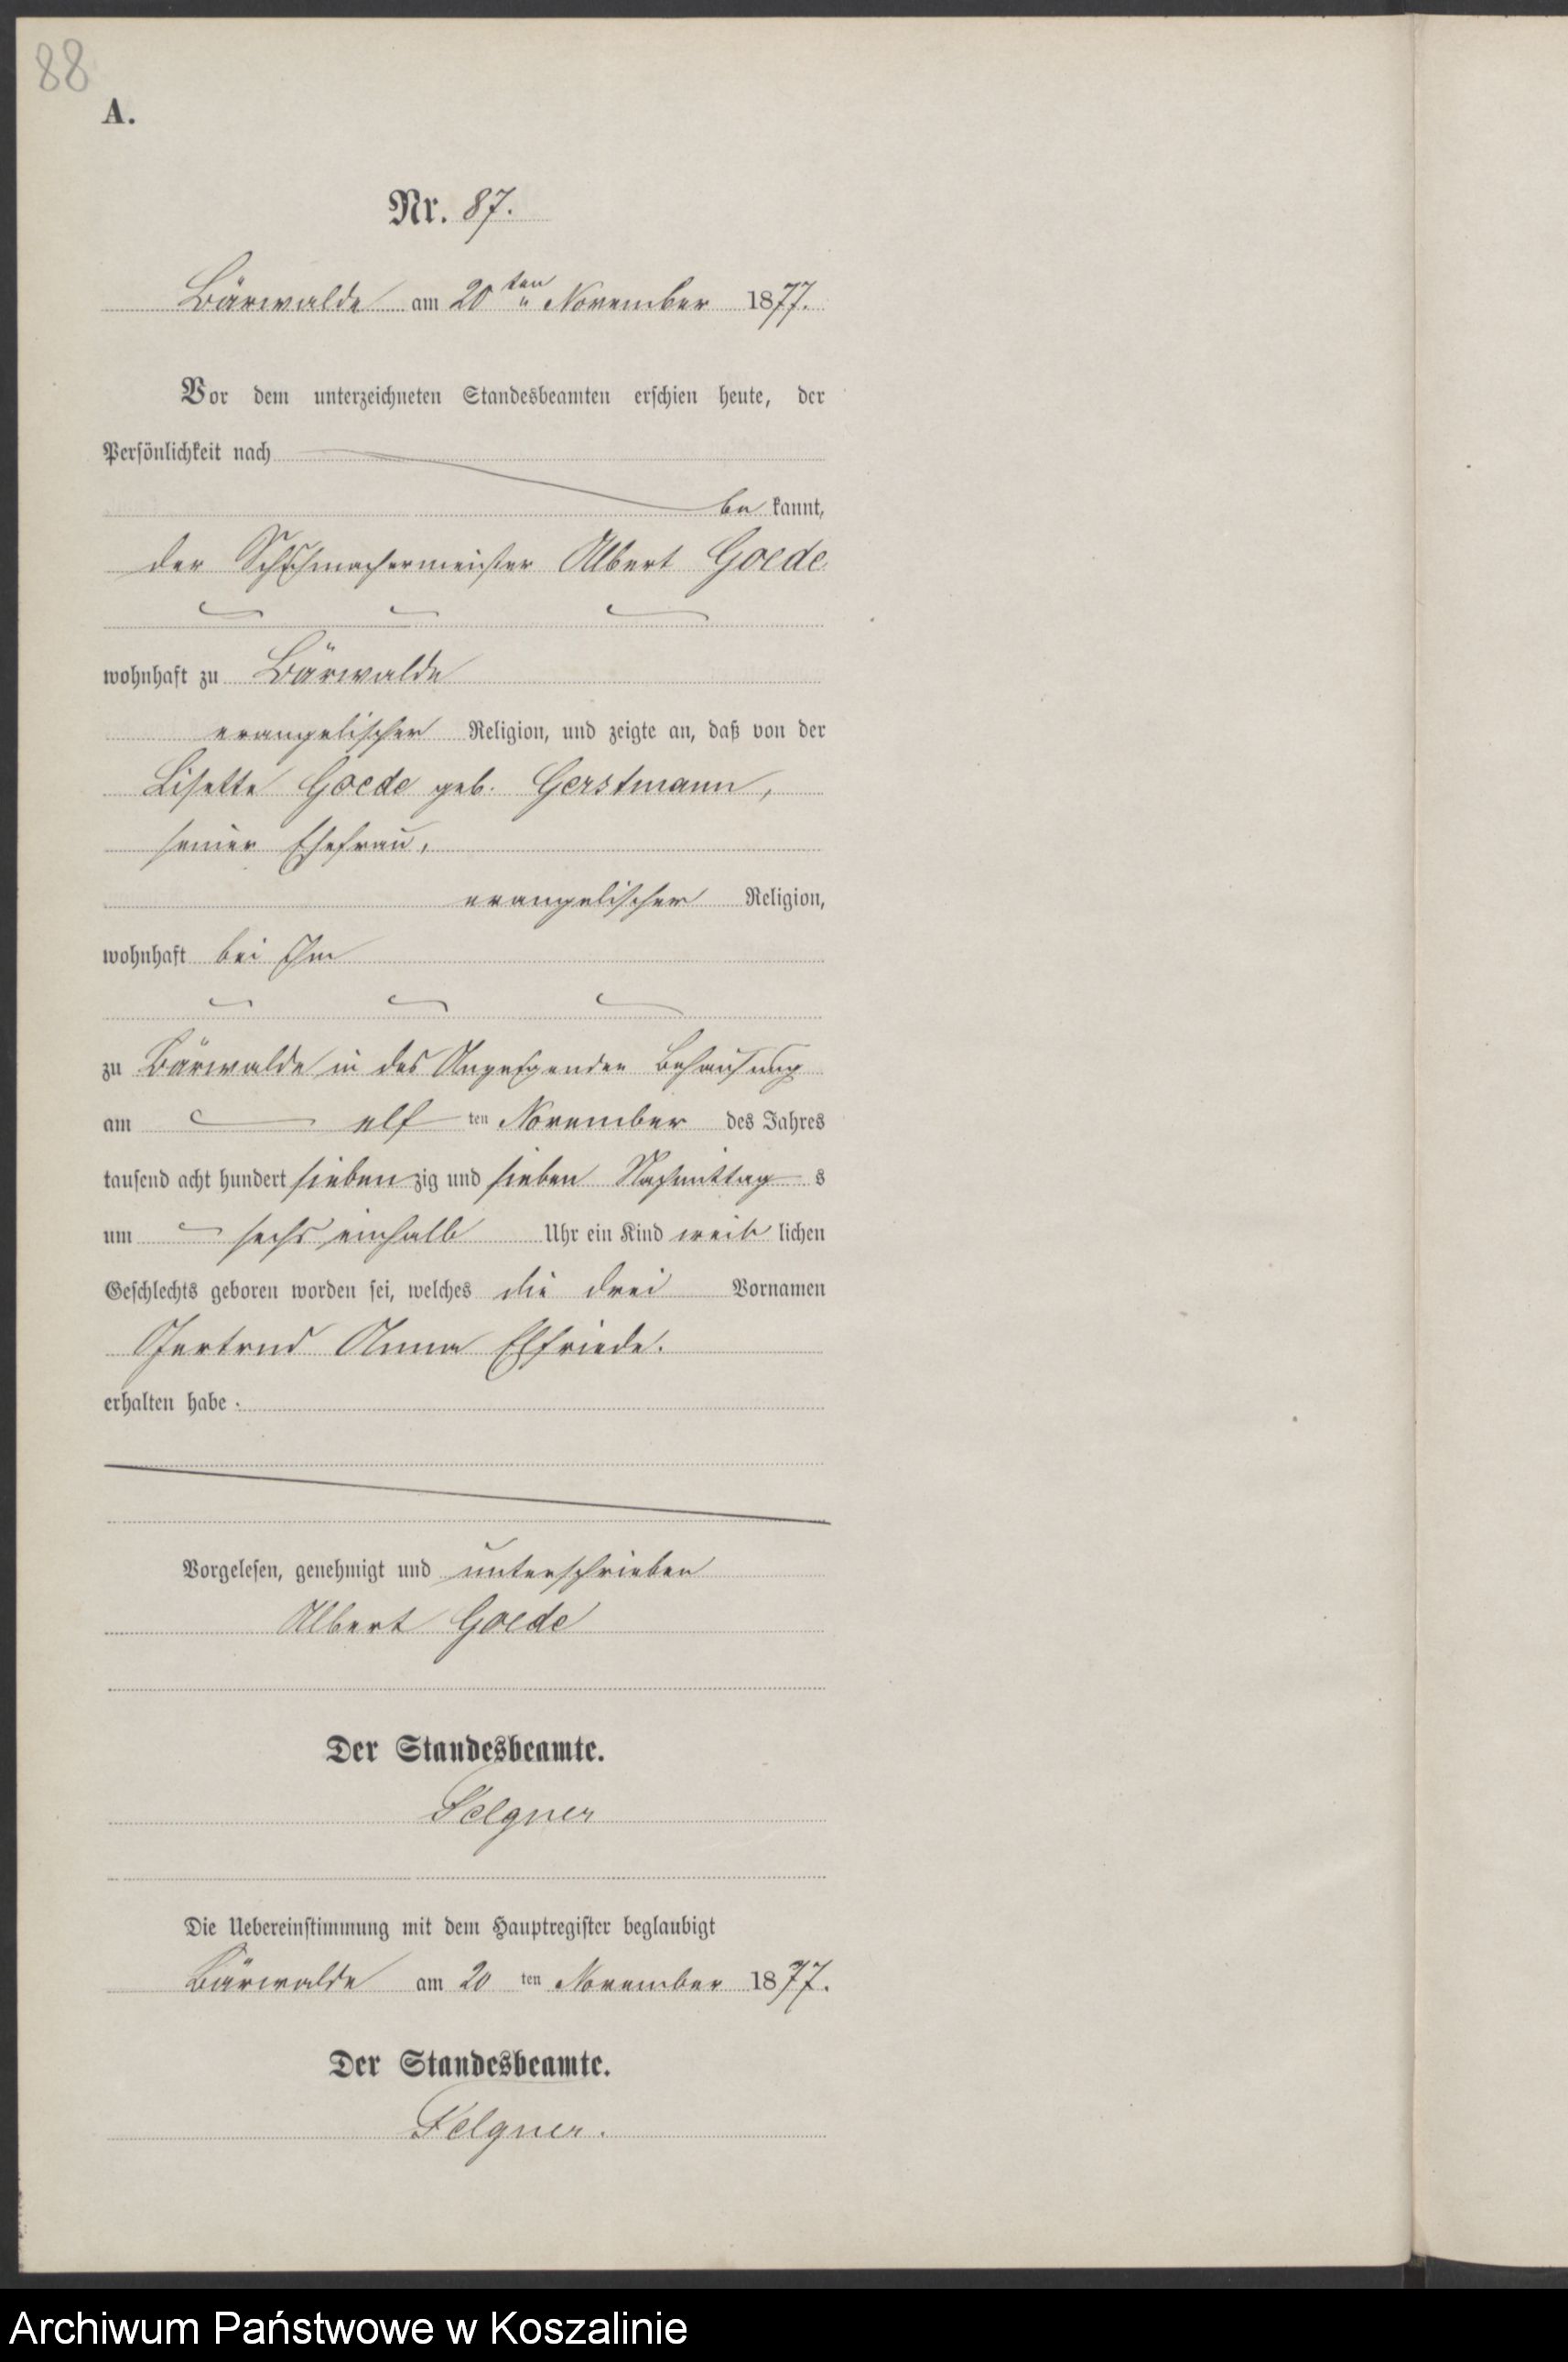 88
A.
Nr. 87.
Bärwalde am 20ten November 1877.
Vor dem unterzeichneten Standesbeamten erschien heute, der
Persönlichkeit nach
be kannt,
der Schuhmachermeister Albert Goede
wohnhaft zu Bärwalde
evangelischer Religion, und zeigte an, daß von der
Lisette Goede geb. Gerstmann,
seiner Ehefrau,
evangelischer Religion,
wohnhaft bei ihm
zu Bärwalde in des Anzeigenden Behausung
am elf ten November des Jahres
tausend acht hundert sieben zig und sieben Nachmittag s
um sechs einhalb Uhr ein Kind weib lichen
Geschlechts geboren worden sei, welches die drei Vornamen
Gertrud Anna Elfriede.
erhalten habe.
Vorgelesen, genehmigt und unterschrieben
Albert Goede
Der Standesbeamte.
Felgner
Die Uebereinstimmung mit dem Hauptregister beglaubigt
Bärwalde am 20 ten November 1877.
Der Standesbeamte.
Felgner.
Archiwum Państwowe w Koszalinie